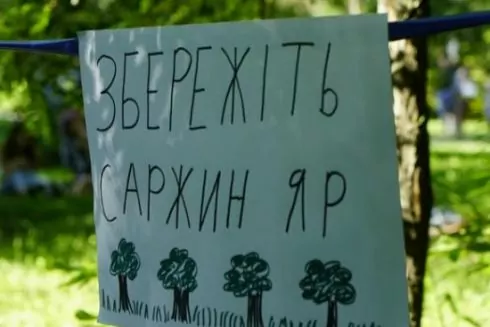 ЗБЕРЕЖІТЬ
САРЖИН ЯР